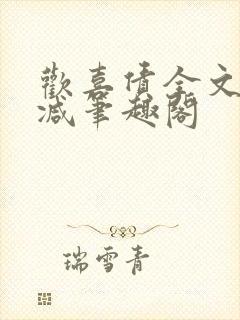 歡喜債全文
减筆趣閣
瑞雪青